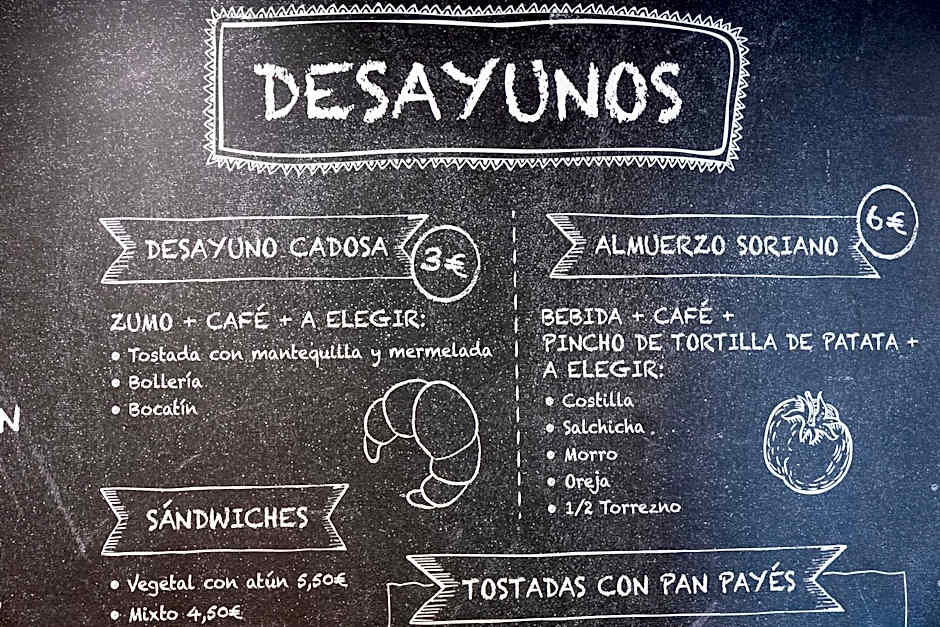 DESAYUNOS
DESAYUNO CADOSA
3€
ZUMO + CAFÉ + A ELEGIR:
• Tostada con mantequilla y mermelada
• Bollería
• Bocatín
SÁNDWICHES
• Vegetal con atún 5,50€
• Mixto 4,50€
ALMUERZO SORIANO
6€
BEBIDA + CAFÉ +
PINCHO DE TORTILLA DE PATATA +
A ELEGIR:
• Costilla
• Salchicha
• Morro
• Oreja
• 1/2 Torrezno
TOSTADAS CON PAN PAYÉS